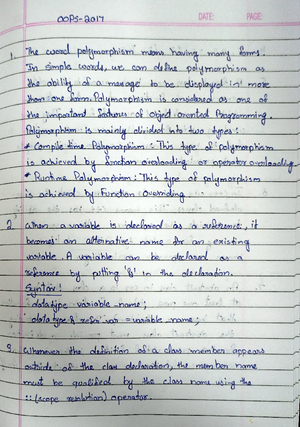 OOPS-2017
DATE: PAGE:
1. The word polymorphism means having many forms.
In simple words, we can define polymorphism as
the ability of a message to be displayed in more
than one form. Polymorphism is considered as one of
the important features of object oriented Programming.
Polymorphism is mainly divided into two types:
* Compile time Polymorphism: This type of polymorphism
is achieved by function overloading or operator overloading.
* Runtime Polymorphism: This type of polymorphism
is achieved by Function Overriding
2. When a variable is declared as a reference, it
becomes an alternative name for an existing
variable. A variable can be declared as a
reference by putting '&' in the declaration.
Syntax:
datatype variable_name;
datatype & refer_var = variable_name;
3. Whenever the definition of a class member appears
outside of the class declaration, the member name
must be qualified by the class name using the
:: (scope resolution) operator.